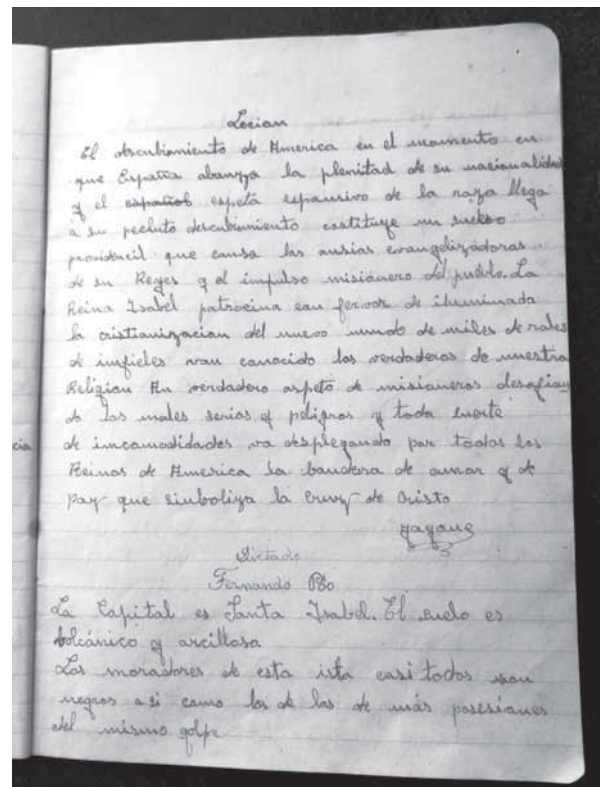 Lecian
El descubrimiento de America en el momento en
que España abanza la plenitad de su nacionalidad
y el español espetá espansivo de la raza llega
a su pecluto descubrimiento costituye un suceso
providencil que causa las ansias evangelizadoras
de su Reyes y el impulso misianero del pueblo. La
Reina Isabel patrocina can fervor de iluminada
la cristianizacian del nuevo mundo de miles de
de imfieles van canocido las verdaderos de nuestra
Religian An verdadero aspeto de misianeros desafian
do las males serias y peligros y toda suerte
de imcamadidades va desplegando par todas los
Reinos de America la bandera de amar y de
paz que simboliza la Cruz de Cristo
cia
Dictado
Fernando Póo
La Capital es Santa Isabel. El suelo es
bolcánico y arcilloso.
Las moradores de esta ista casi todos son
negros asi camo las de las de más posesianes
del mismo golpe